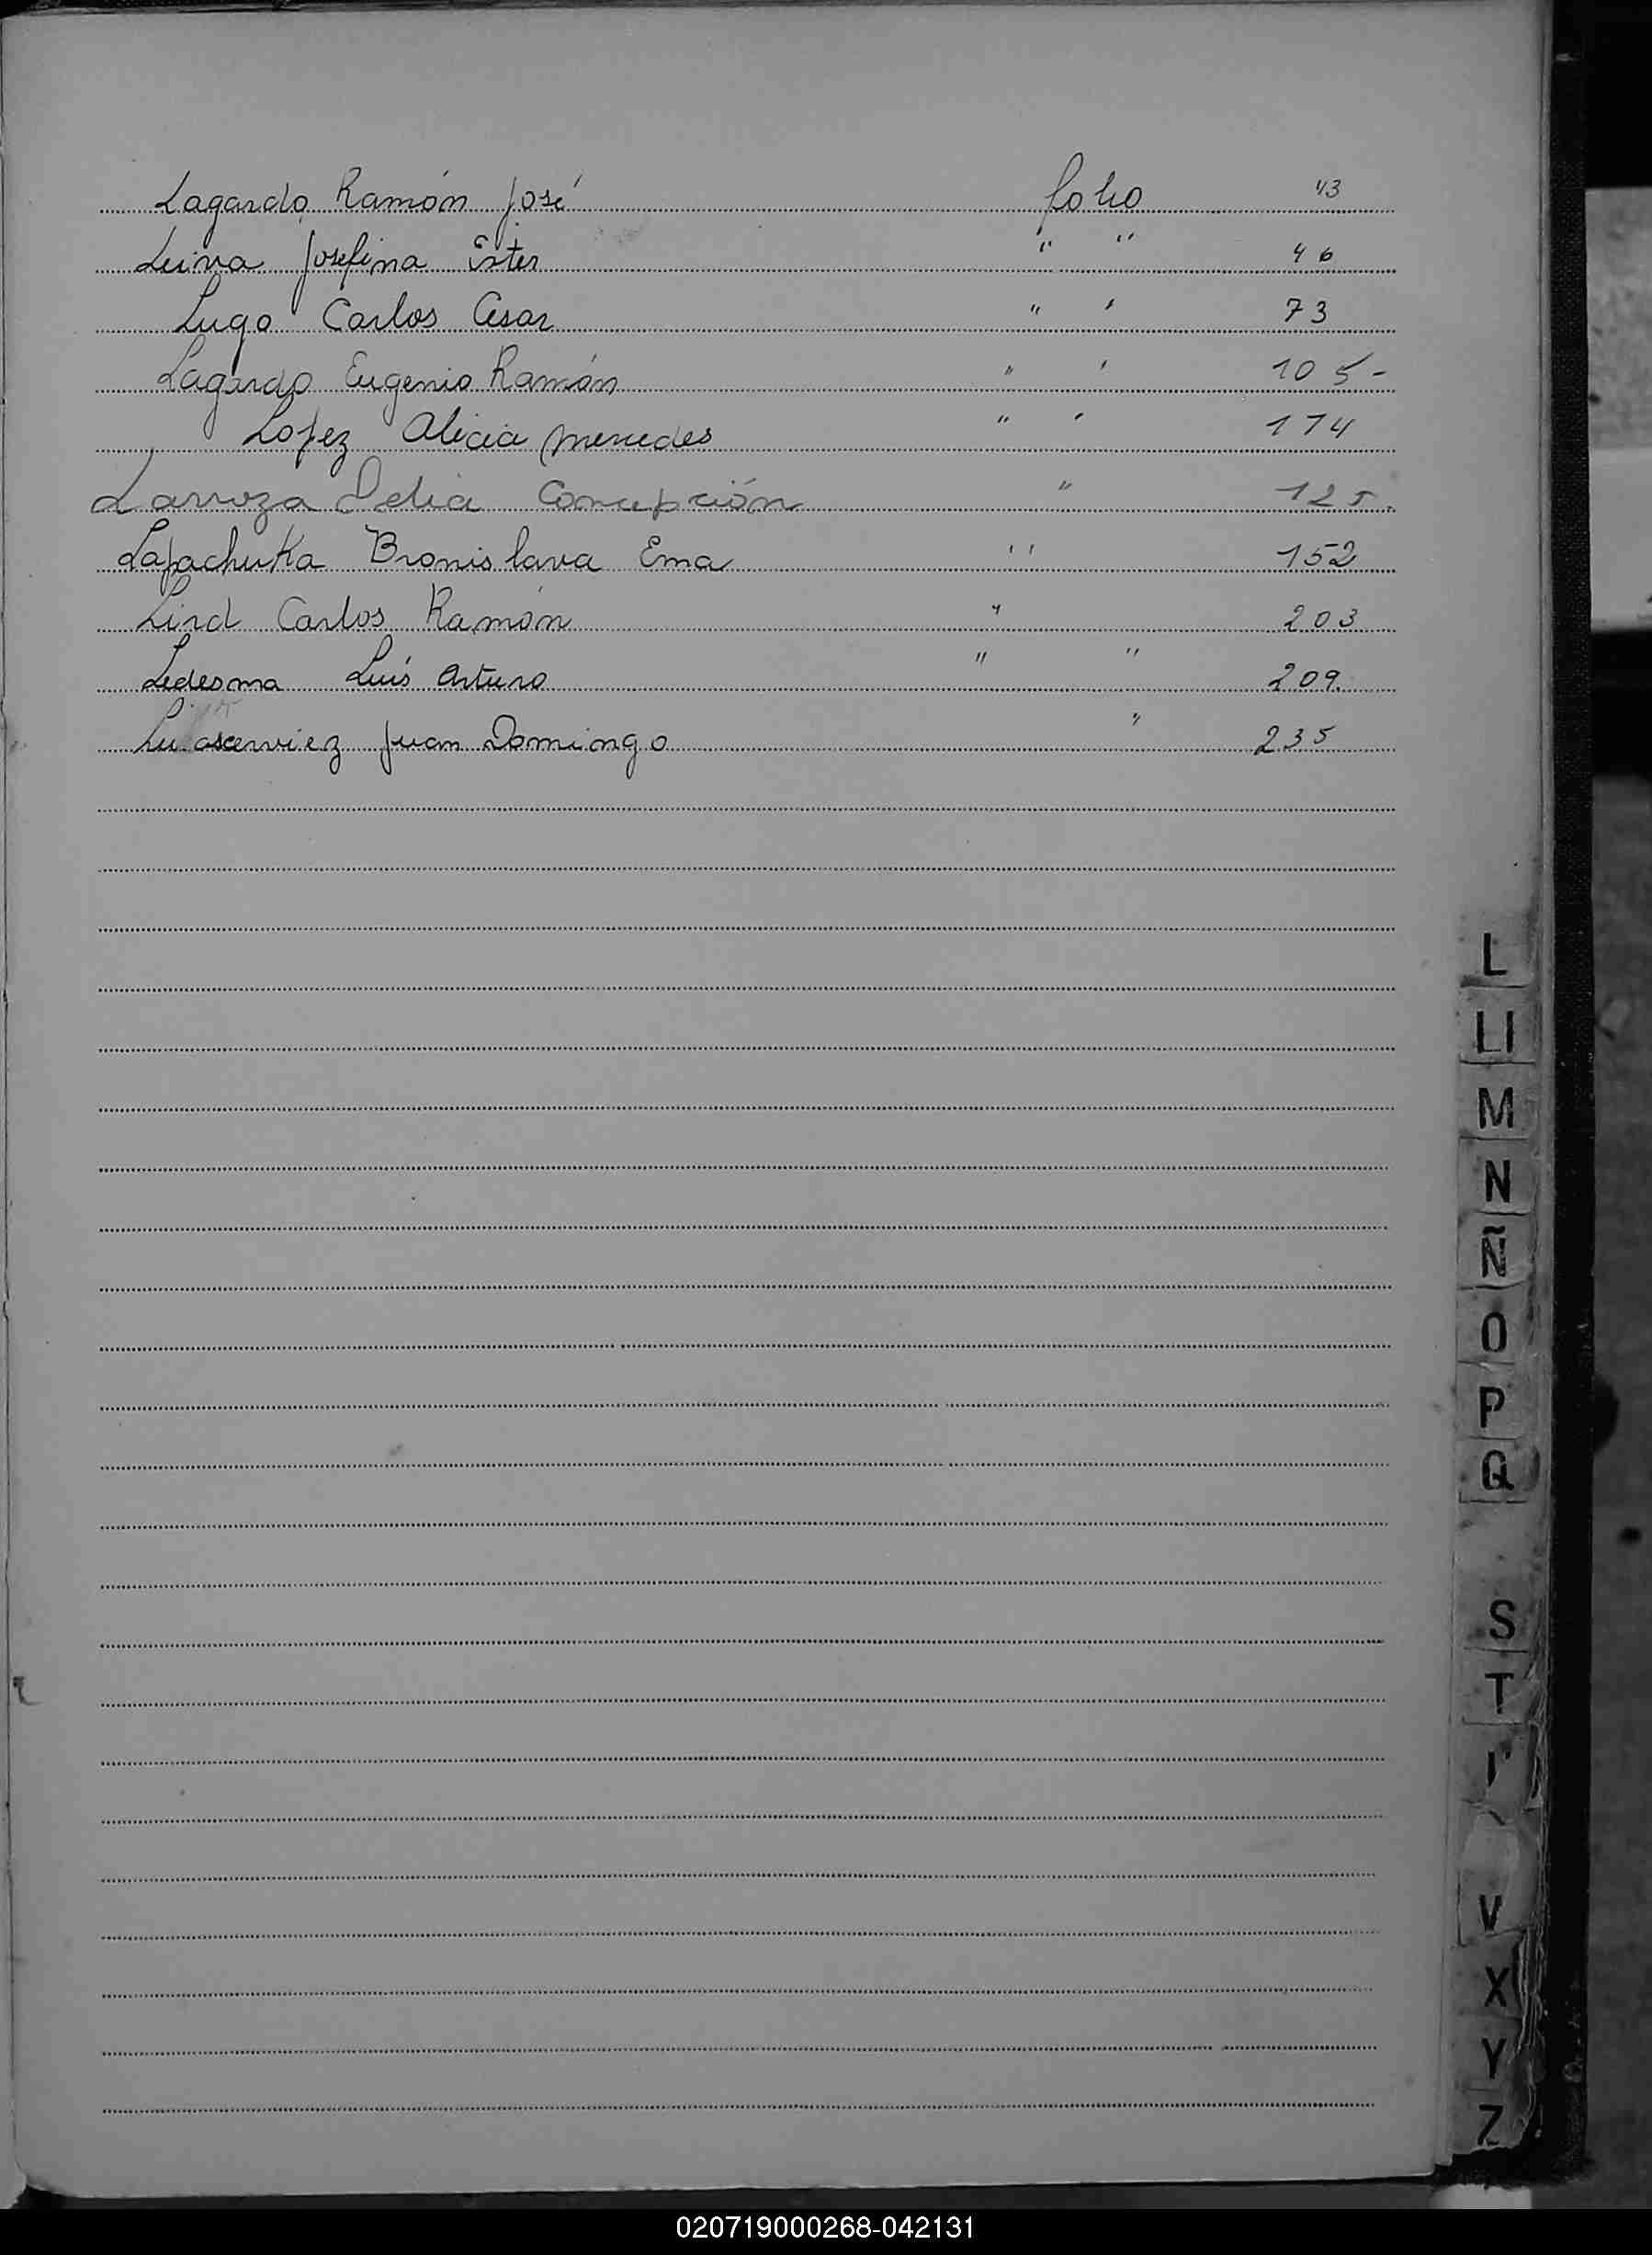 Lagardo Ramón José folio 43
Leiva Josefina Ester " " 46
Lugo Carlos Cesar " " 73
Lagardo Eugenio Ramón " " 105-
Lopez Alicia Mercedes " " 174
Larroza Delia Concepción " 125.
Lapachuka Bronislava Ema " 152
Lird Carlos Ramón " 203
Ledesma Luis Arturo " " 209.
Juan Domingo " 235
L
Ll
M
N
Ñ
O
P
Q
S
T
V
X
Y
Z
020719000268-042131